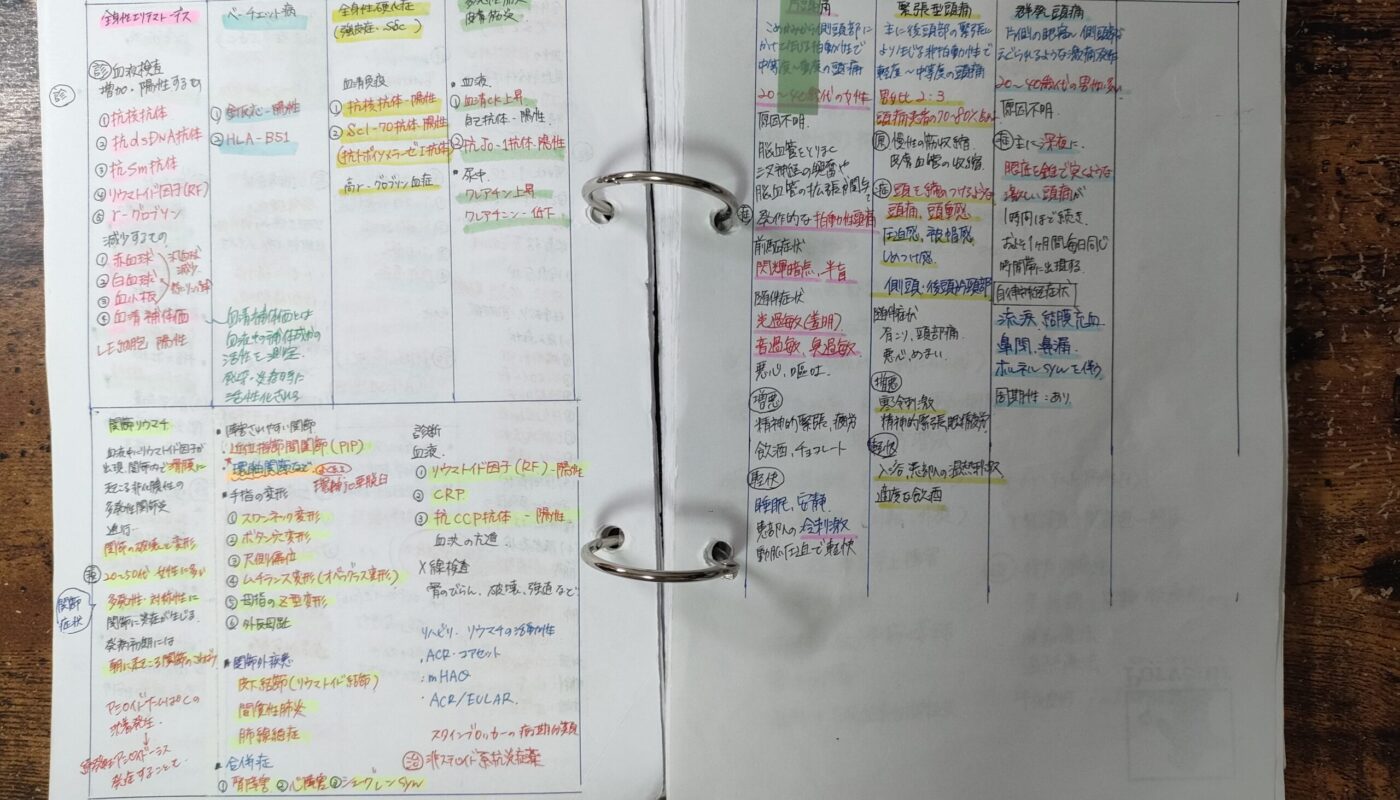 全身性エリテマトーデス
㊩血液検査
増加・陽性するもの
① 抗核抗体
② 抗dsDNA抗体
③ 抗Sm抗体
④ リウマトイド因子(RF)
⑤ γ-グロブリン
減少するもの
① 赤血球
② 白血球
③ 血小板
④ 血清補体価
LE細胞 陽性
ベーチェット病
② HLA-B51
血清補体価とは
血液中の補体成分の
活性を測定
活性化される
全身性硬化症
(強皮症・SSc)
血清免疫
① 抗核抗体-陽性
② Scl-70抗体-陽性
(抗トポイソメラーゼI抗体)
高γ-グロブリン血症
皮膚筋炎
・血液
① 血清CK上昇
自己抗体-陽性
② 抗Jo-1抗体-陽性
・尿中
クレアチン上昇
クレアチニン-低下
関節リウマチ
血液中にリウマトイド因子が
出現、関節内で滑膜に
起こる非化膿性の
多発性関節炎
進行→
関節の破壊と変形
20~50代 女性に多い
関節症状
多発性・対称性に
関節に炎症が生じる。
発病初期には
朝に起こる関節のこわばり
アミロイドたんぱくの
沈着発生
↓
続発性アミロイドーシス
発症することで
・障害されやすい関節
近位指節間関節(PIP)
環軸関節など
環軸jo亜脱臼
・手指の変形
① スワンネック変形
② ボタン穴変形
③ 尺側偏位
④ ムチランス変形(オペラグラス変形)
⑤ 母指のZ型変形
⑥ 外反母趾
・関節外疾患
皮下結節(リウマトイド結節)
間質性肺炎
肺線維症
・合併症
① 腎障害 ② 心障害 ③ シェーグレンsyn
診断
血液
① リウマトイド因子(RF)-陽性
② CRP
③ 抗CCP抗体-陽性
血沈の亢進
X線検査
骨のびらん、破壊、強直など
リハビリ・リウマチの活動性
・ACR・コアセット
・mHAQ
・ACR/EULAR
スタインブロッカーの病期分類
㊪非ステロイド系抗炎症薬
片頭痛
こめかみから側頭部に
かけて生じる拍動性で
中等度~重度の頭痛
20~40歳代の女性
原因不明.
脳血管をとりまく
三叉神経の興奮や
脳血管の拡張が関与
発作的な拍動性頭痛
前駆症状
閃輝暗点、半盲
随伴症状
光過敏(羞明)
音過敏、臭過敏
悪心、嘔吐.
増悪
精神的緊張、疲労
飲酒、チョコレート
軽快
睡眠、安静
患部への冷刺激
動脈圧迫で軽快
緊張型頭痛
主に後頭部の緊張に
より生じる非拍動性で
軽度~中等度の頭痛
男女比 2:3
頭痛患者の70~80%占める
慢性の筋収縮
頭を締めつけるような
頭痛、頭重感
圧迫感、被帽感
しめつけ感.
側頭・後頭から頭部
随伴症状
肩こり、頸部痛
悪心、めまい.
増悪
寒冷刺激
精神的緊張、眼精疲労
軽快
入浴、患部への温熱刺激
適度な飲酒
群発頭痛
片側の眼窩~側頭部
えぐられるような激痛発作
20~40歳代の男性多い
原因不明.
主に深夜に、
眼底を錐で突くような
激しい頭痛が
1時間ほど続き
およそ1ヶ月間毎日同じ
時間帯に出現する
自律神経症状
流涙、結膜充血
鼻閉、鼻漏
ホルネルsynを伴う
周期性:あり